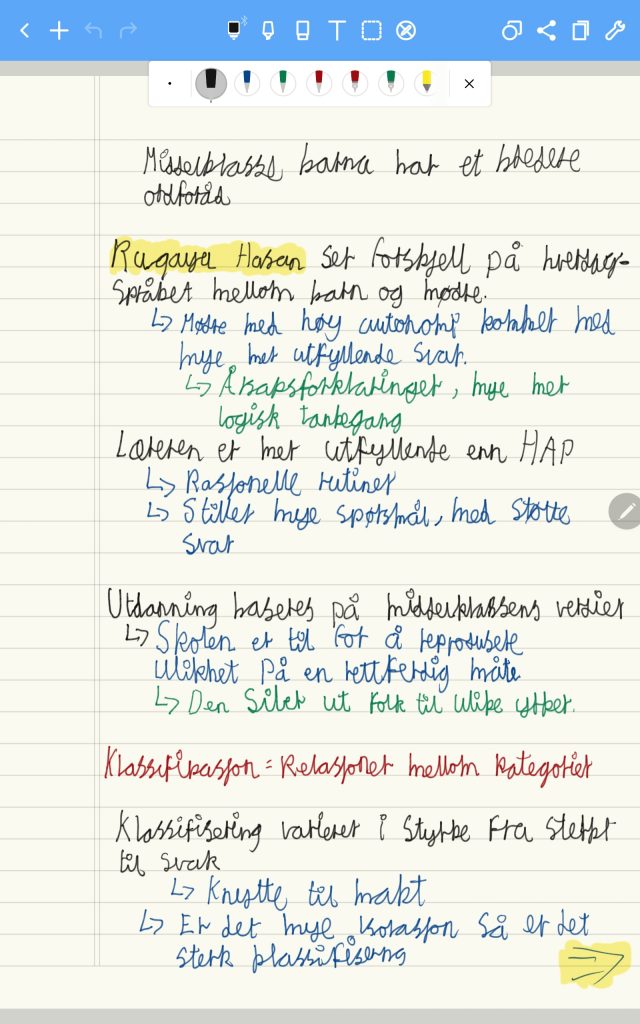 Middelklasse barna har et bredere
ordforåd
Ruqaiya Hasan ser forskjell på hverdag-
språket mellom barn og mødre.
↳ Mødre med høy autonomi kommer med
mye mer utfyllende svar.
↳ Åksapsforklaringer, mye mer
logisk tankegang
Læreren er mer utfyllende enn HAP
↳ Rasjonelle rutiner
↳ Stiller mye spørsmål, med større
svar
Utdanning baseres på middelklassens verdier
↳ Skolen er til for å reprodusere
ulikhet på en rettferdig måte
↳ Den Siler ut folk til ulike yrker.
Klassifikasjon = Relasjoner mellom kategorier
Klassifisering varierer i Styrke Fra Sterkt
til svak
↳ Knytte til makt
↳ Er det mye isolasjon så er det
sterk klassifisering